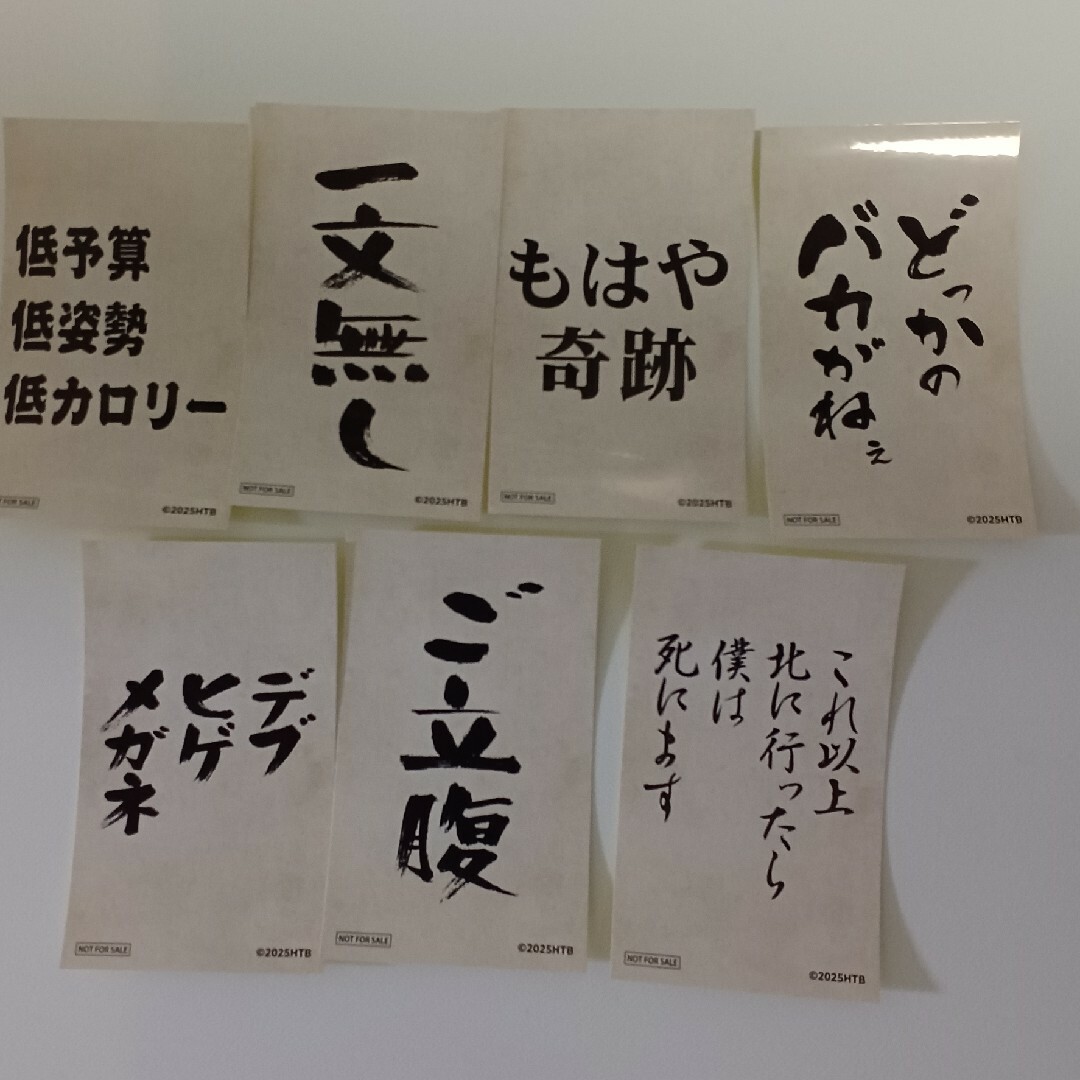 低予算
低姿勢
低カロリー
NOT FOR SALE
©2025HTB
一文無し
NOT FOR SALE
©2025HTB
もはや
奇跡
NOT FOR SALE
©2025HTB
どっかの
バカがねぇ
NOT FOR SALE
©2025HTB
デブ
ヒゲ
メガネ
NOT FOR SALE
©2025HTB
ご立腹
NOT FOR SALE
©2025HTB
これ以上
北に行ったら
僕は
死にます
NOT FOR SALE
©2025HTB